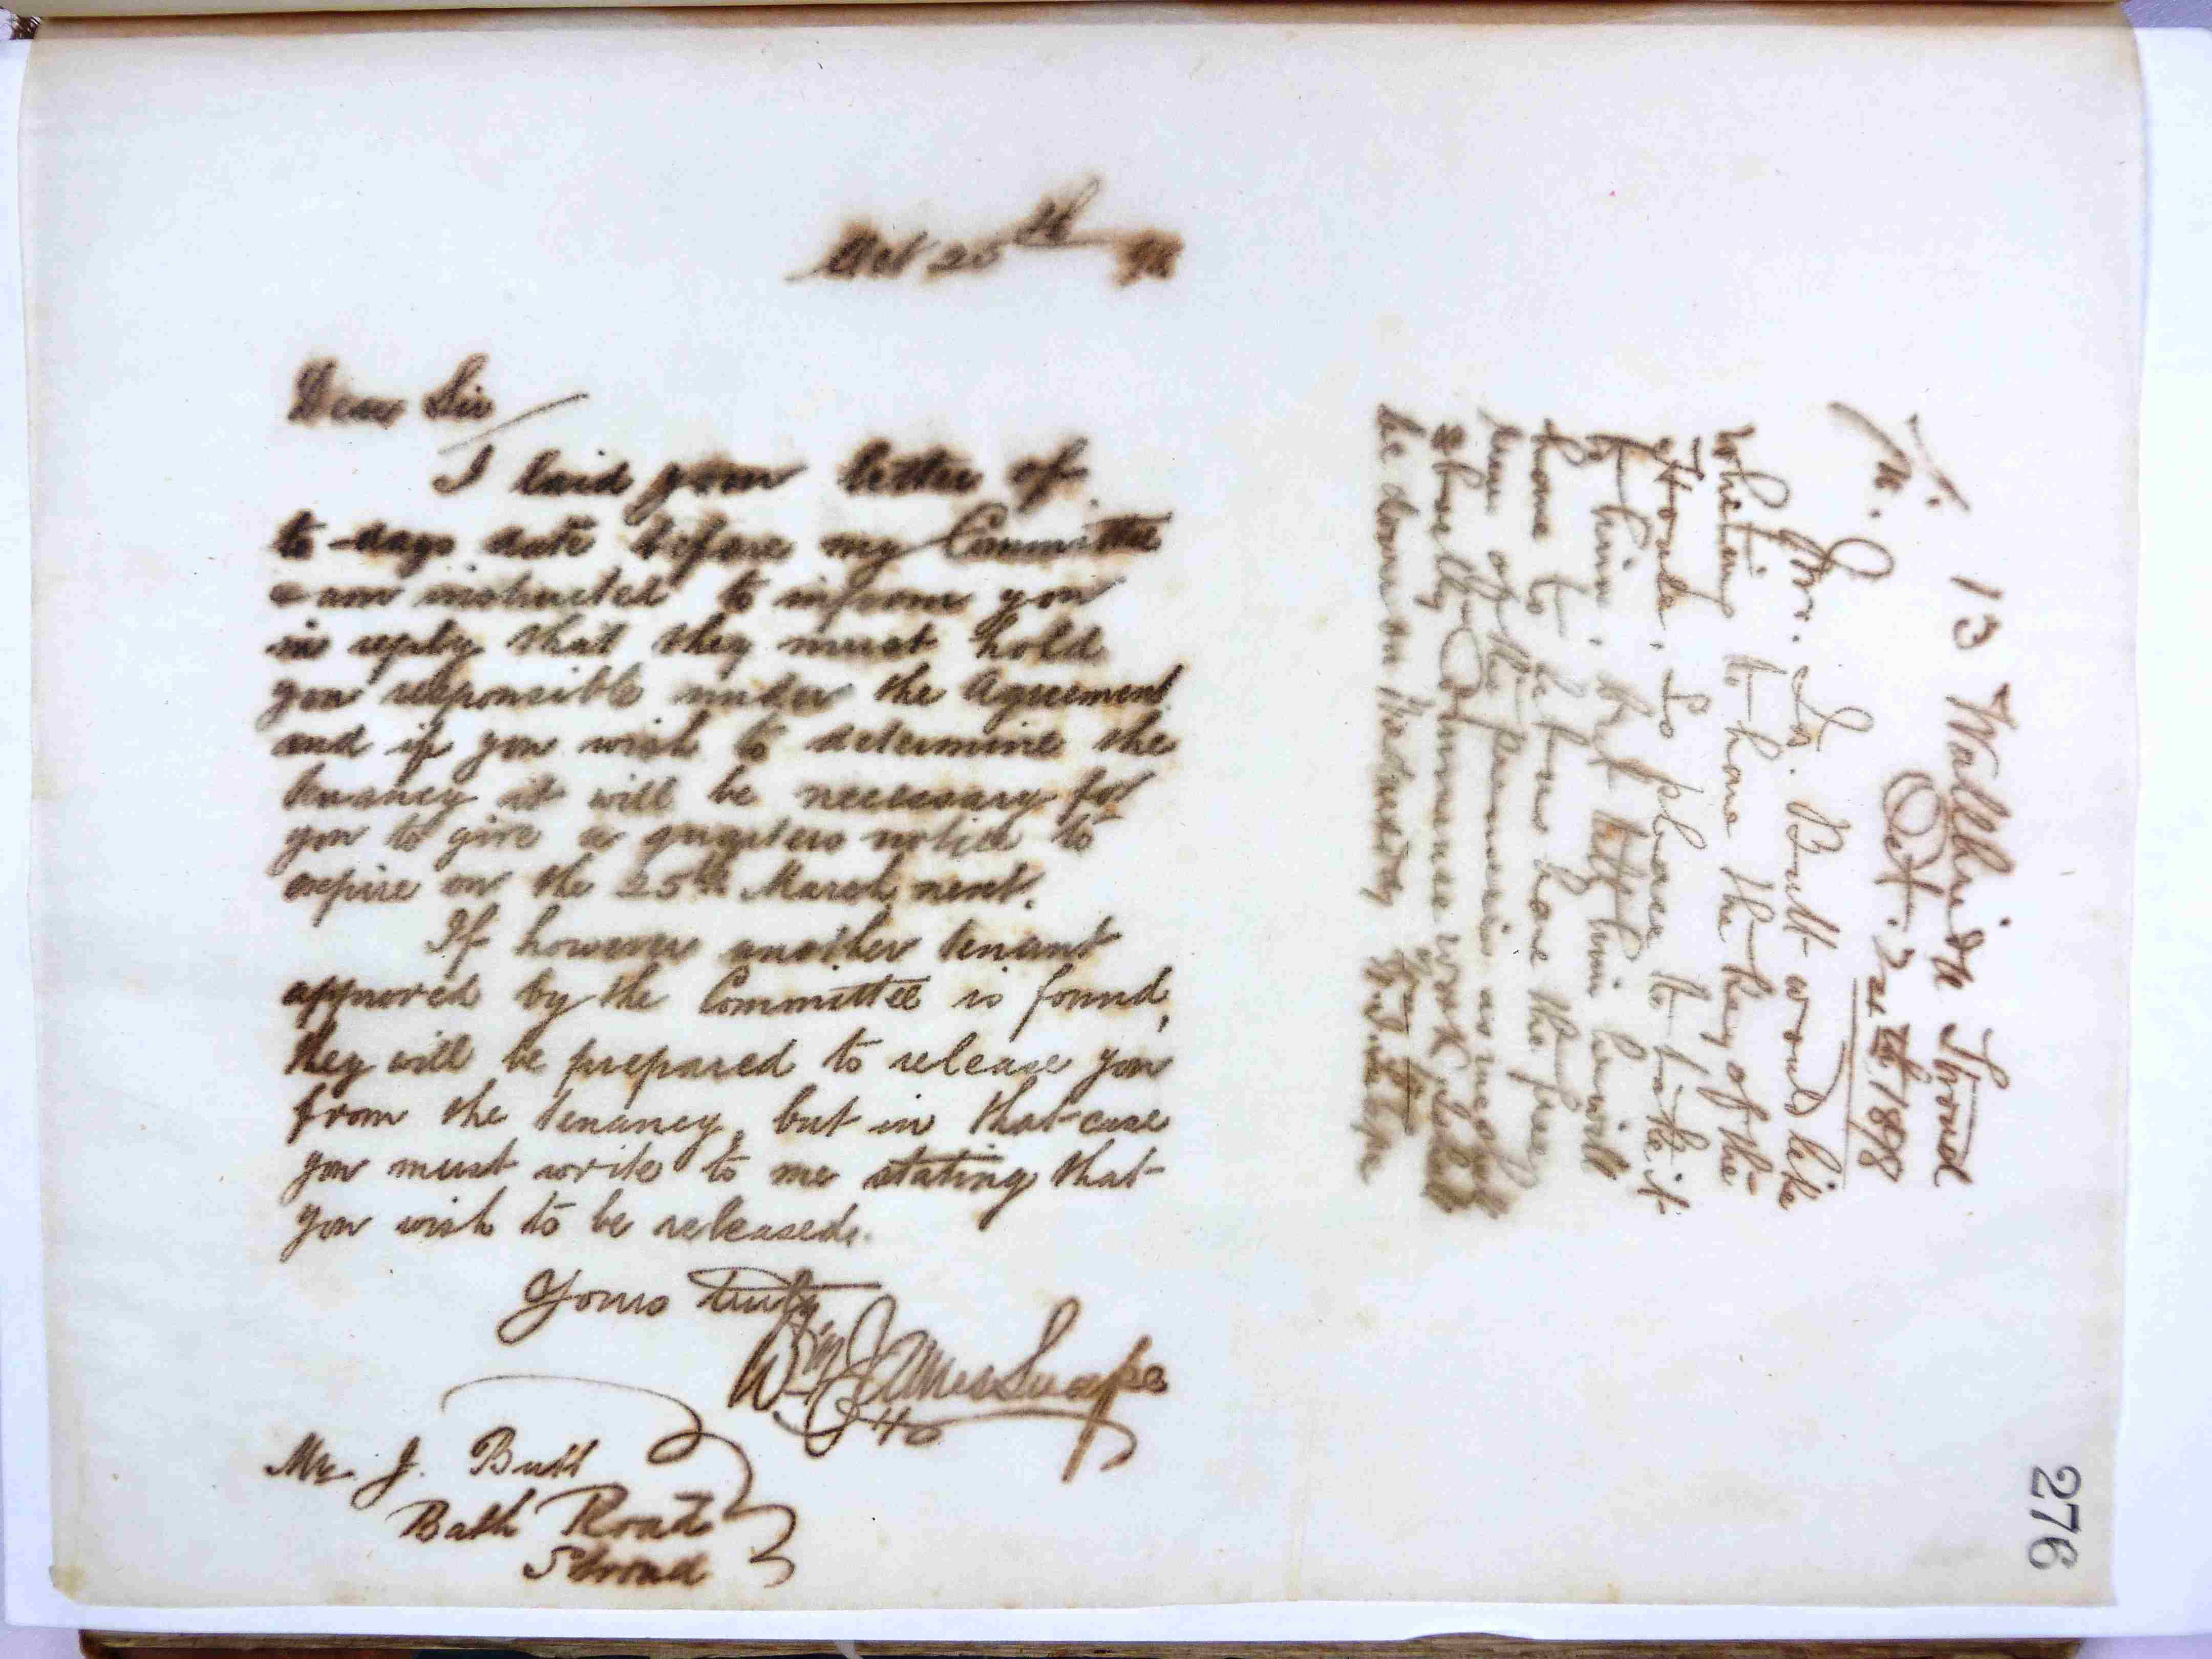 Oct 25th 98
Dear Sir
I laid your letter of
to-days date before my Committee
& am instructed to inform you
in reply that they must hold
you responsible under the Agreement
and if you wish to determine the
tenancy it will be necessary for
you to give a quarters notice to
expire on the 25th March next.
If however another tenant
approved by the Committee is found,
they will be prepared to release you
from the tenancy, but in that case
you must write to me stating that
you wish to be released.
Yours truly
Wm James
Mr J. Butt
Bath Road
Stroud
13 Wallbridge Stroud
Oct. 1898
Mr. Js. Butt would like
to have the key of the
House. So please to take it
to him, but tell him he will
have to let us have the free
run of the premises as we shall
shortly Commence work
be down on Wednesday
276